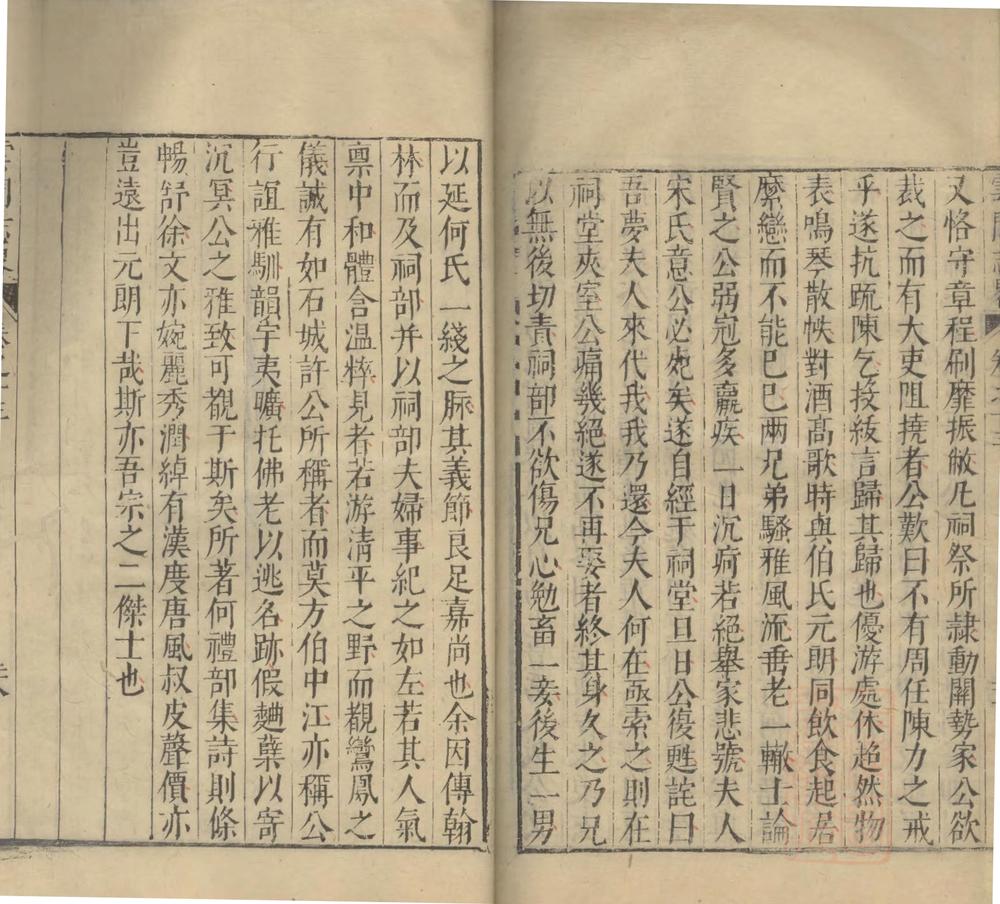 又恪守章程刷靡振敝凡祠祭所隷動關勢家公欲
裁之而有大吏阻撓者公歎曰不有周任陳力之戒
乎遂抗䟽陳乞投紱言歸其歸也優游處休超然物
表鳴琴散帙對酒高歌時與伯氏元朗同飲食起居
縻戀而不能已已兩兄弟騷雅風流垂老一轍士論
賢之公弱冠多羸疾一日沉疴若絕舉家悲號夫人
宋氏意公必死矣遂自經于祠堂旦日公復甦詫曰
吾夢夫人來代我我乃還今夫人何在亟索之則在
祠堂夾室公痛幾絕遂不再娶者終其身久之乃兄
以無後切責祠部不欲傷兄心勉畜一妾後生一男
以延何氏一綫之脉其義節良足嘉尚也余因傳翰
林而及祠部并以祠部夫婦事紀之如左若其人氣
禀中和體含温粹見者若游清平之野而覩鸞鳳之
儀誠有如石城許公所稱者而莫方伯中江亦稱公
行誼雅馴韻宇夷曠托佛老以逃名跡假麯蘖以寄
沉冥公之雅致可覩于斯矣所著何禮部集詩則條
暢舒徐文亦婉麗秀潤綽有漢度唐風叔皮聲價亦
豈遠出元朗下哉斯亦吾宗之二傑士也